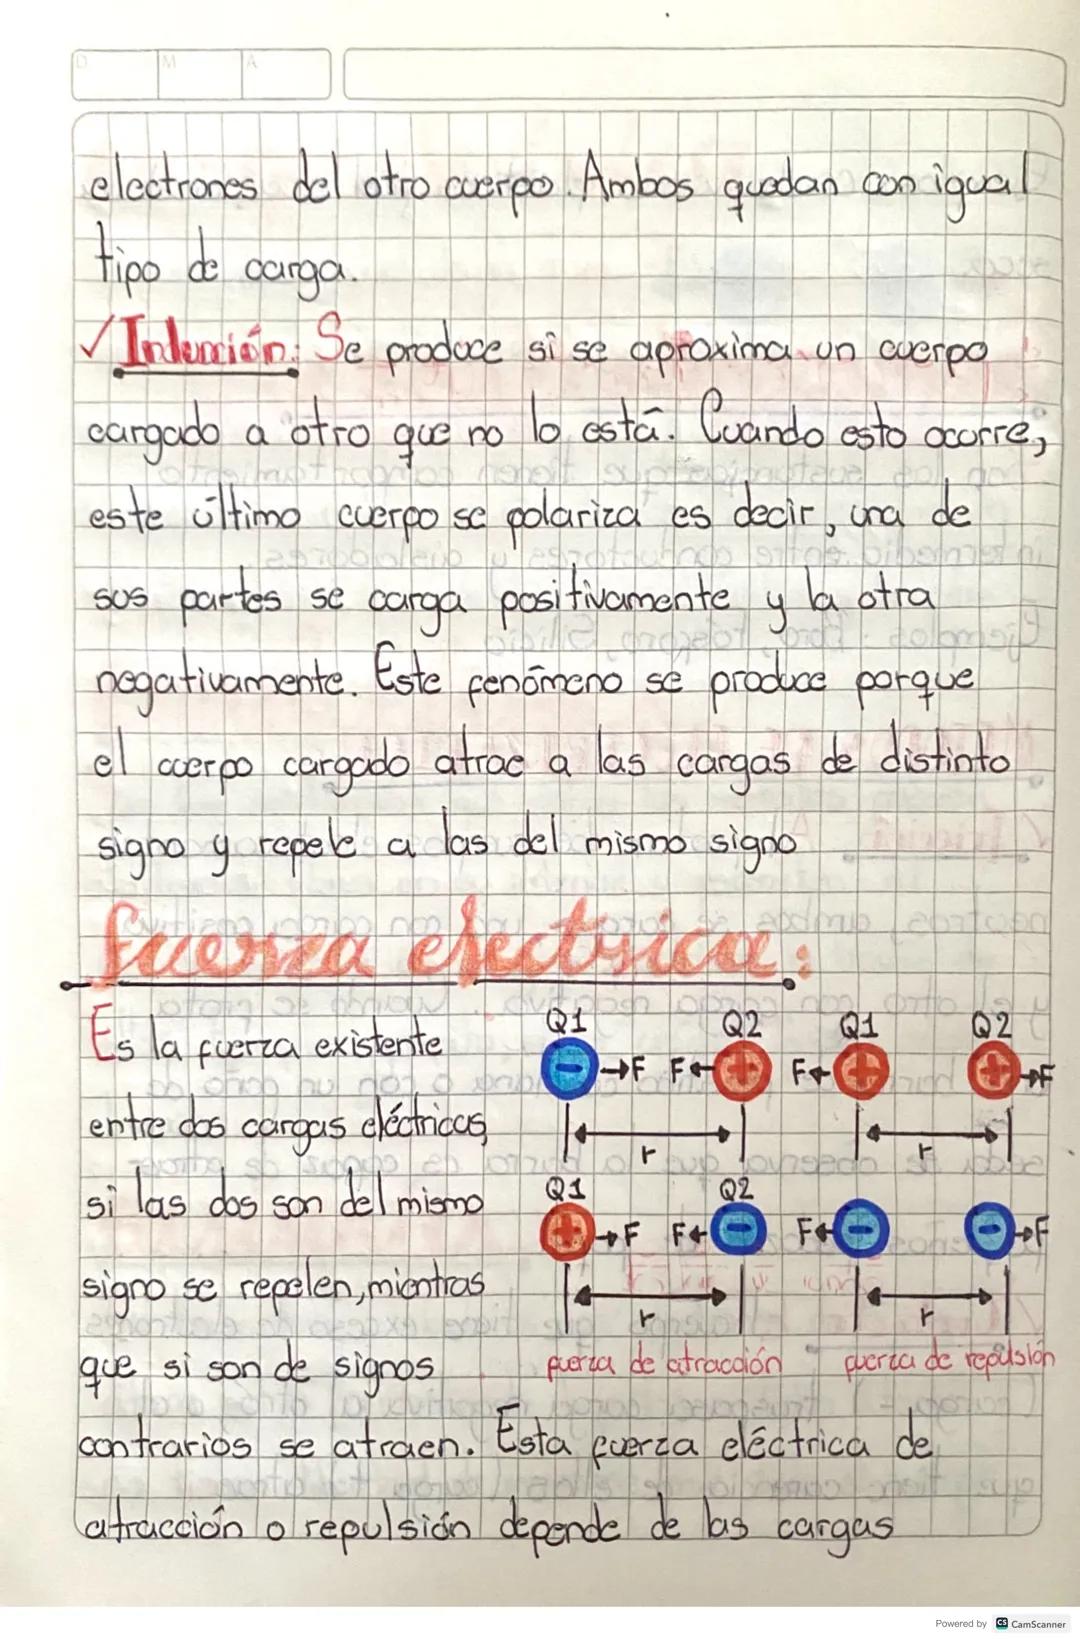 D M A
electrones del otro cuerpo. Ambos quedan con igual
tipo de carga.
✓Inducción: Se produce si se aproxima un cuerpo
cargado a otro que no lo está. Cuando esto ocurre,
este último cuerpo se polariza es decir, una de
sus partes se carga positivamente y la otra
negativamente. Este fenómeno se produce porque
el cuerpo cargado atrae a las cargas de distinto
signo y repele a las del mismo signo
fuerza electrica:
Es la fuerza existente
entre dos cargas eléctricas,
si las dos son del mismo
signo se repelen, mientras
que si son de signos
contrarios se atraen. Esta fuerza eléctrica de
atracción o repulsión depende de las cargas
Q1 Q2 Q1 Q2
- →F F← + F← + + →F
r r
Q1 Q2
+ →F F← - F← - - →F
r r
fuerza de atracción fuerza de repulsión
Powered by CS CamScanner